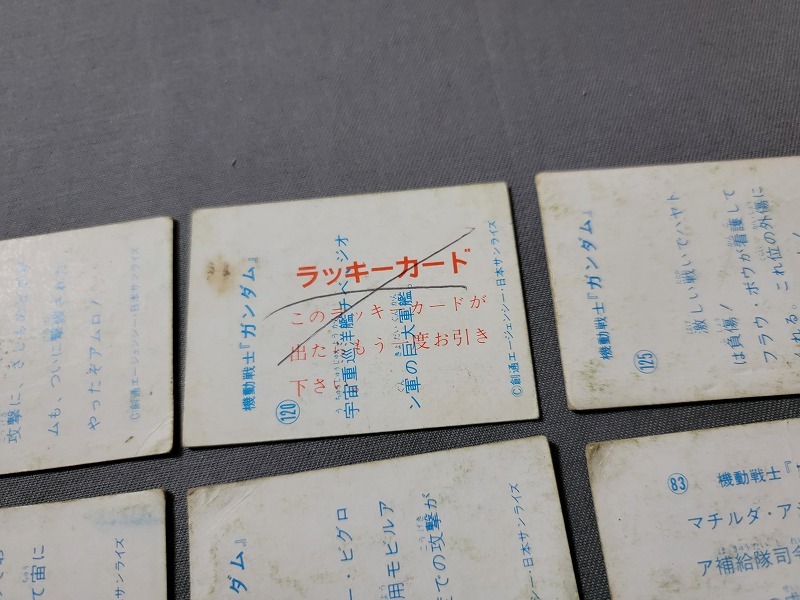 攻撃に、さしもの
ムも、ついに撃破された
やったぞアムロ!
©創通エージェンシー・日本サンライズ
機動戦士『ガンダム』
120
ラッキーカード
このラッキーカードが
出たらもう一度お引き
下さい
宇宙重巡洋艦チベ、ジオ
ン軍の巨大軍艦。
©創通エージェンシー・日本サンライズ
機動戦士『ガンダム』
125
激しい戦いでハヤト
は負傷!
フラウ・ボウが看護して
くれる。これ位の外傷に
て宙に
サンライズ
ダム』
ー・ビグロ
用モビルア
での攻撃が
シー・日本サンライズ
83
機動戦士『
マチルダ・ア
ア補給隊司令